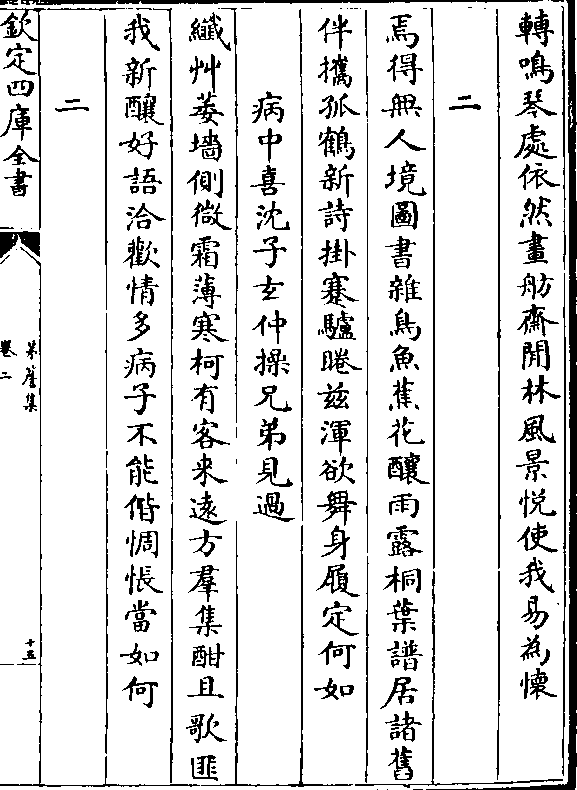 轉鳴琴處依然畫舫齋開林風景悦使我易為懷
二
焉得無人境圖書雜鳥魚蕉花釀雨露桐葉譜居諸舊
伴攜孤鶴新詩掛蹇驢睠兹渾欲舞身履定何如
病中喜沈子玄仲操兄弟見過
纎艸萎墻側微霜薄寒柯有客来遠方羣集酣且歌匪
我新釀好語洽歡情多病子不能偕惆悵當如何
二
欽定四庫全書
集
卷二
十五